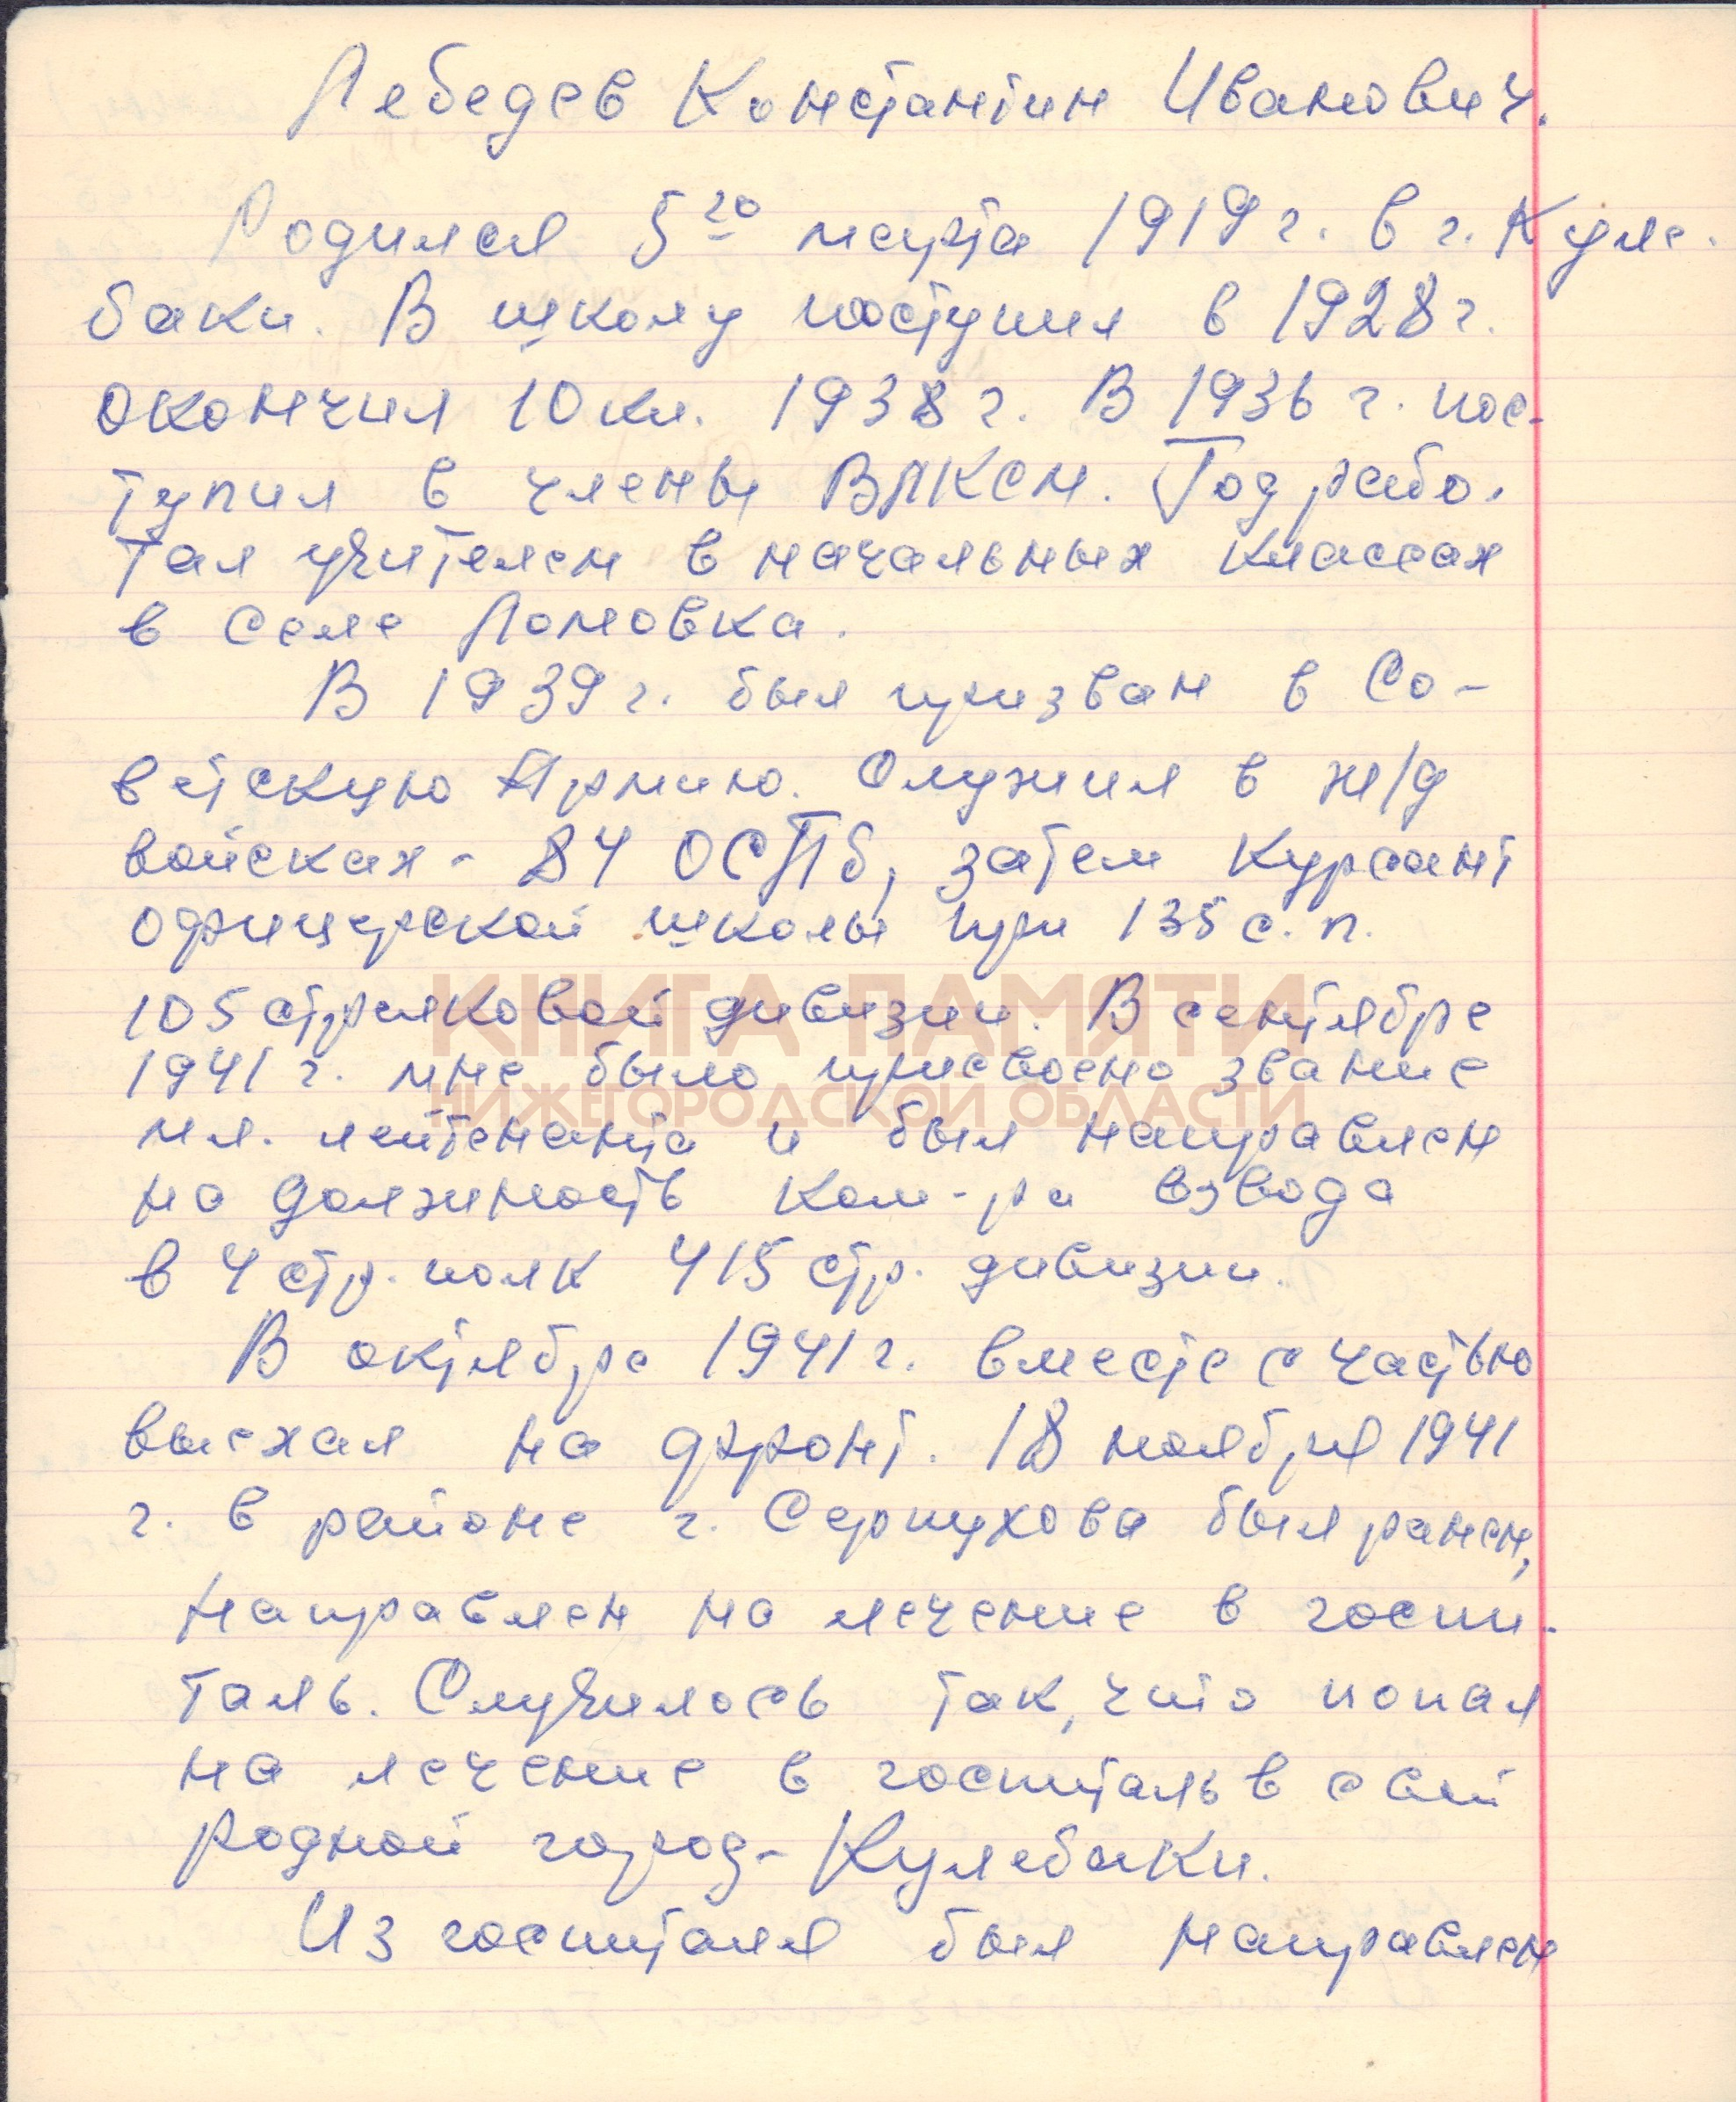 Лебедев Константин Иванович.
Родился 5го марта 1919 г. в г. Куле-
баки. В школу поступил в 1928 г.
окончил 10 кл. 1938 г. В 1936 г. пос-
тупил в члены ВЛКСМ. Год рабо-
тал учителем в начальных классах
в селе Ломовка.
В 1939 г. был призван в Со-
ветскую Армию. Служил в ж/д
войсках - 84 ОСПб, затем курсант
офицерской школы при 135 с. п.
КНИГА ПАМЯТИ
105 стрелковой дивизии. В сентябре
1941 г. мне было присвоено звание
НИЖЕГОРОДСКОЙ ОБЛАСТИ
мл. лейтенанта и был направлен
на должность ком-ра взвода
в 4 стр. полк 415 стр. дивизии.
В октябре 1941 г. вместе с частью
выехал на фронт. 18 ноября 1941
г. в районе г. Серпухова был ранен,
направлен на лечение в госпи-
таль. Случилось так, что попал
на лечение в госпиталь в свой
родной город - Кулебаки.
Из госпиталя был направлен